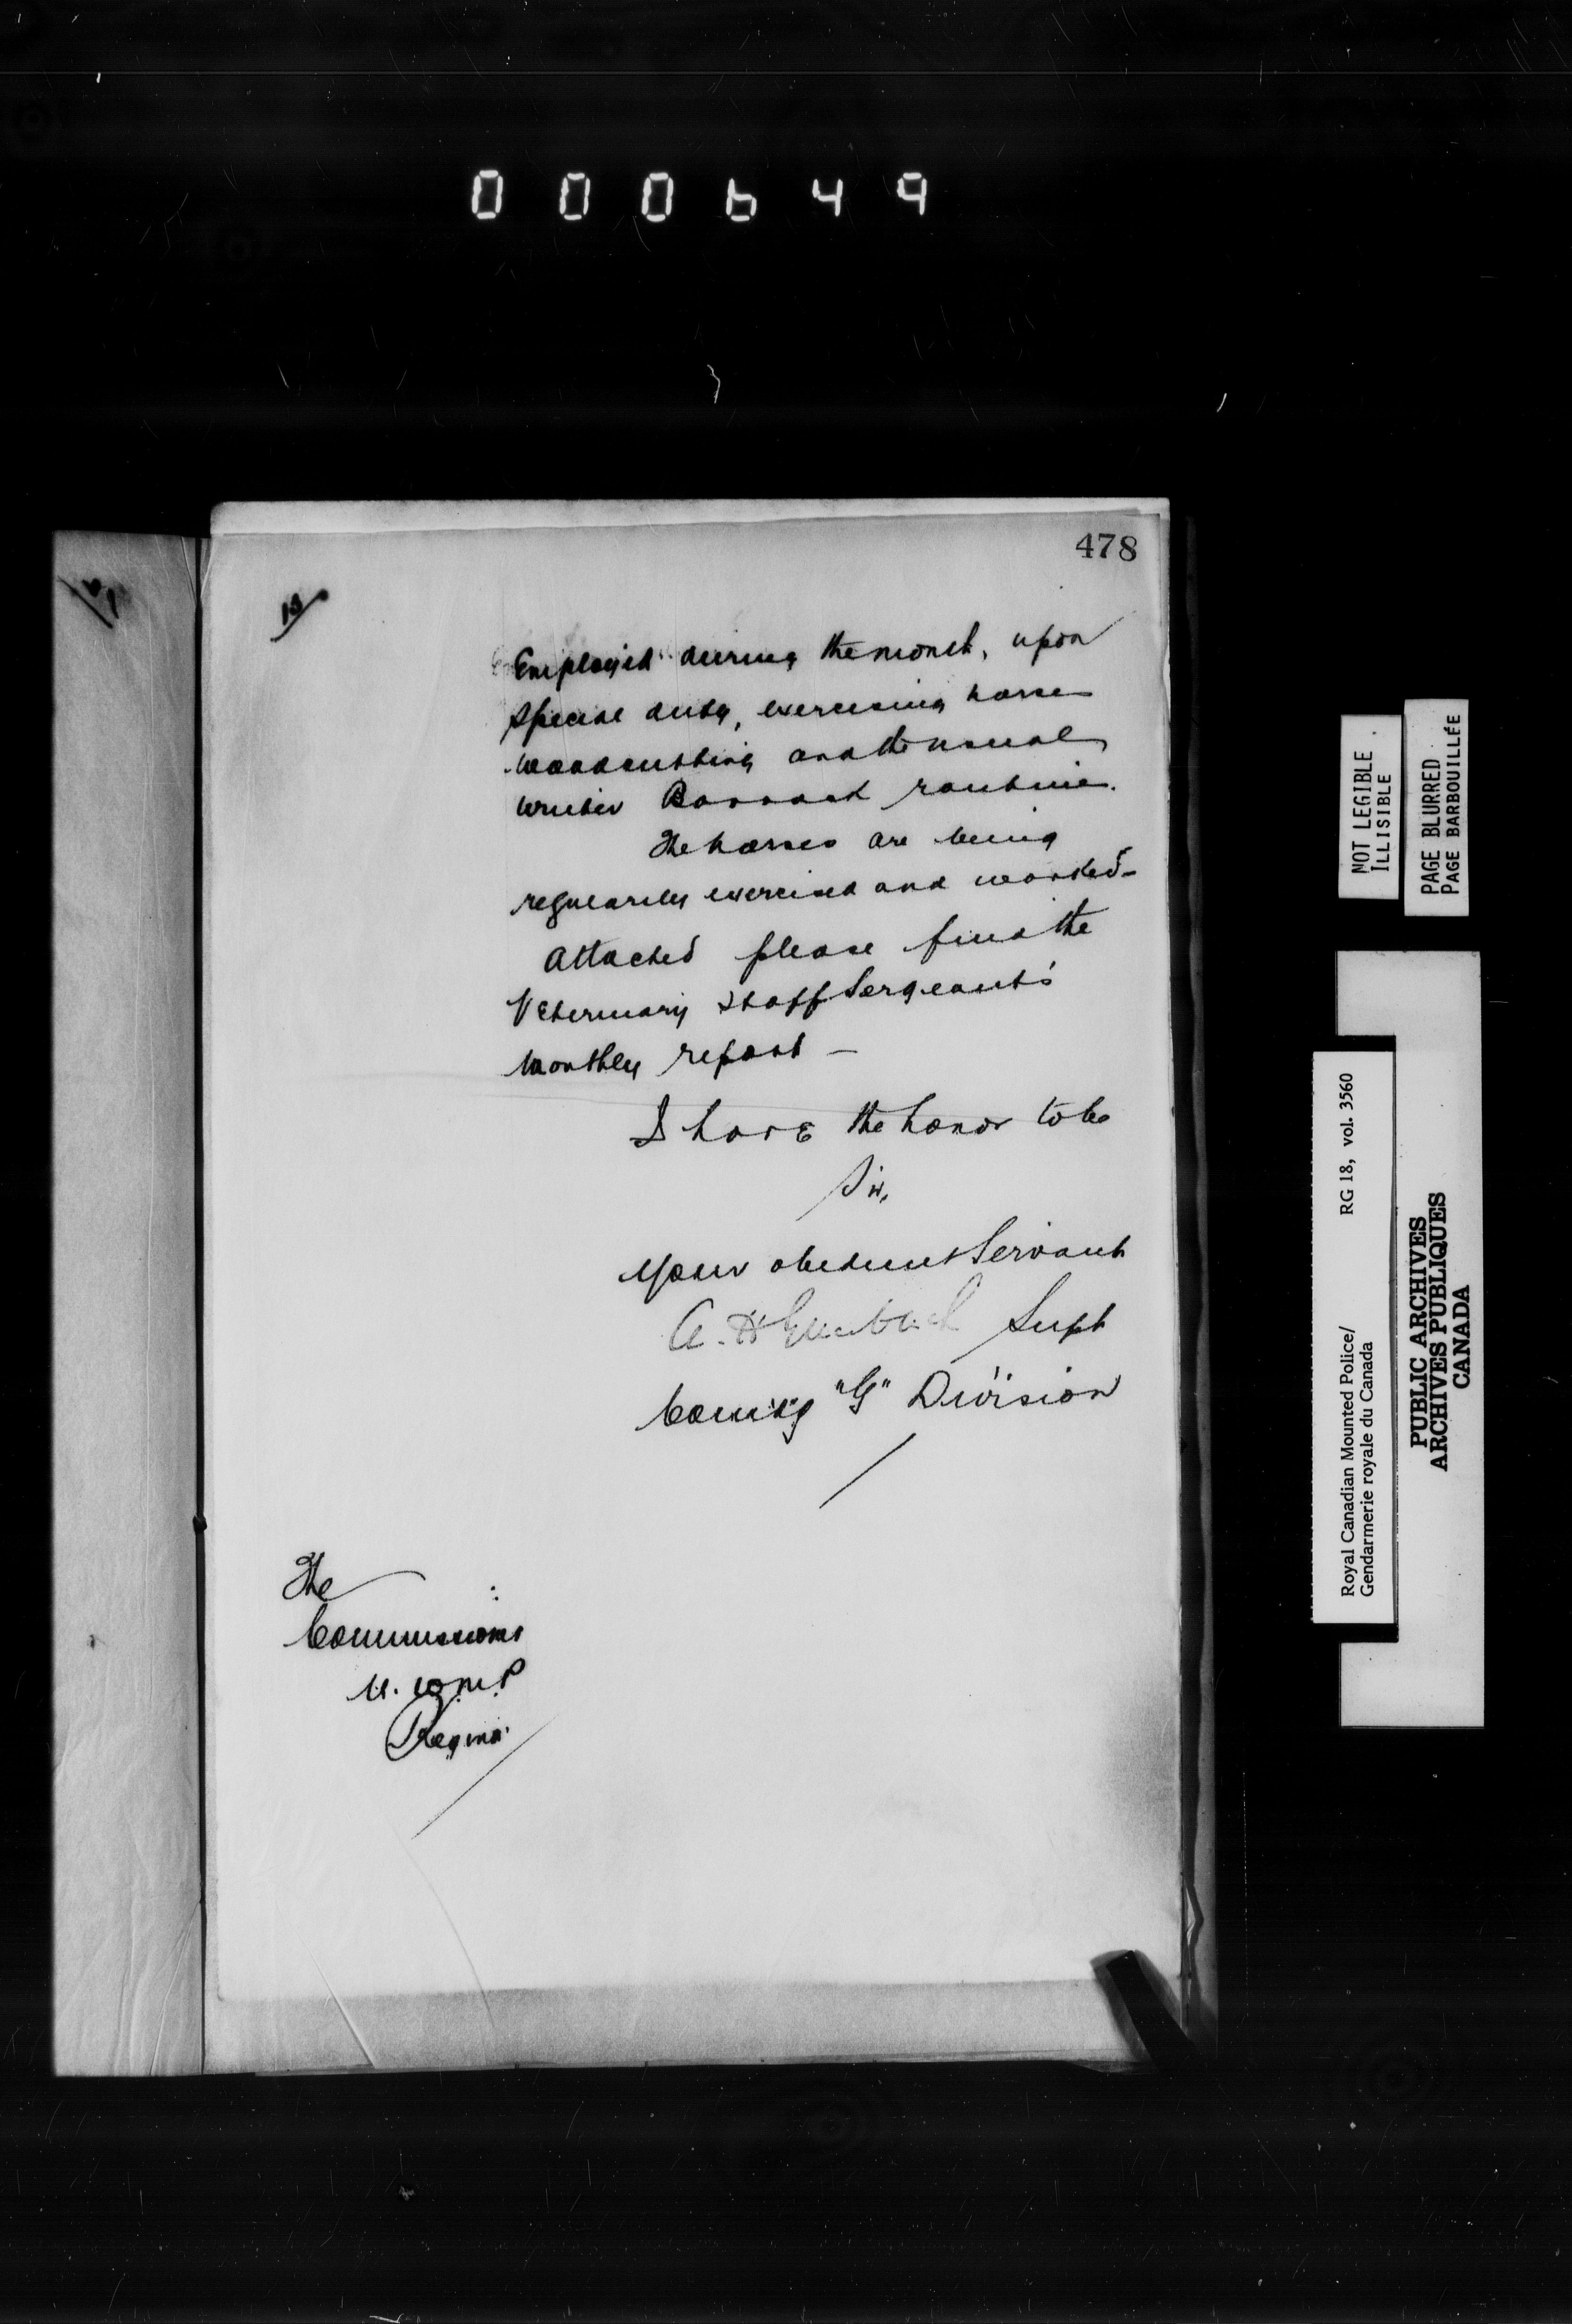 000649
478
13
Employed during the month, upon
special duty, exercising horses
woodcutting and the usual
winter Barrack routine.
The horses are being
regularly exercised and worked-
Attached please find the
Veterinary Staff Sergeant's
Monthly report -
I have the honor to be
Sir,
Your obedient Servant
A. H Griesbach Supt
Comdg "G" Division
The
Commissioner
N. W. M. P
Regina
NOT LEGIBLE
ILLISIBLE
PAGE BLURRED
PAGE BARBOUILLÉE
Royal Canadian Mounted Police/ RG 18, vol. 3560
Gendarmerie royale du Canada
PUBLIC ARCHIVES
ARCHIVES PUBLIQUES
CANADA